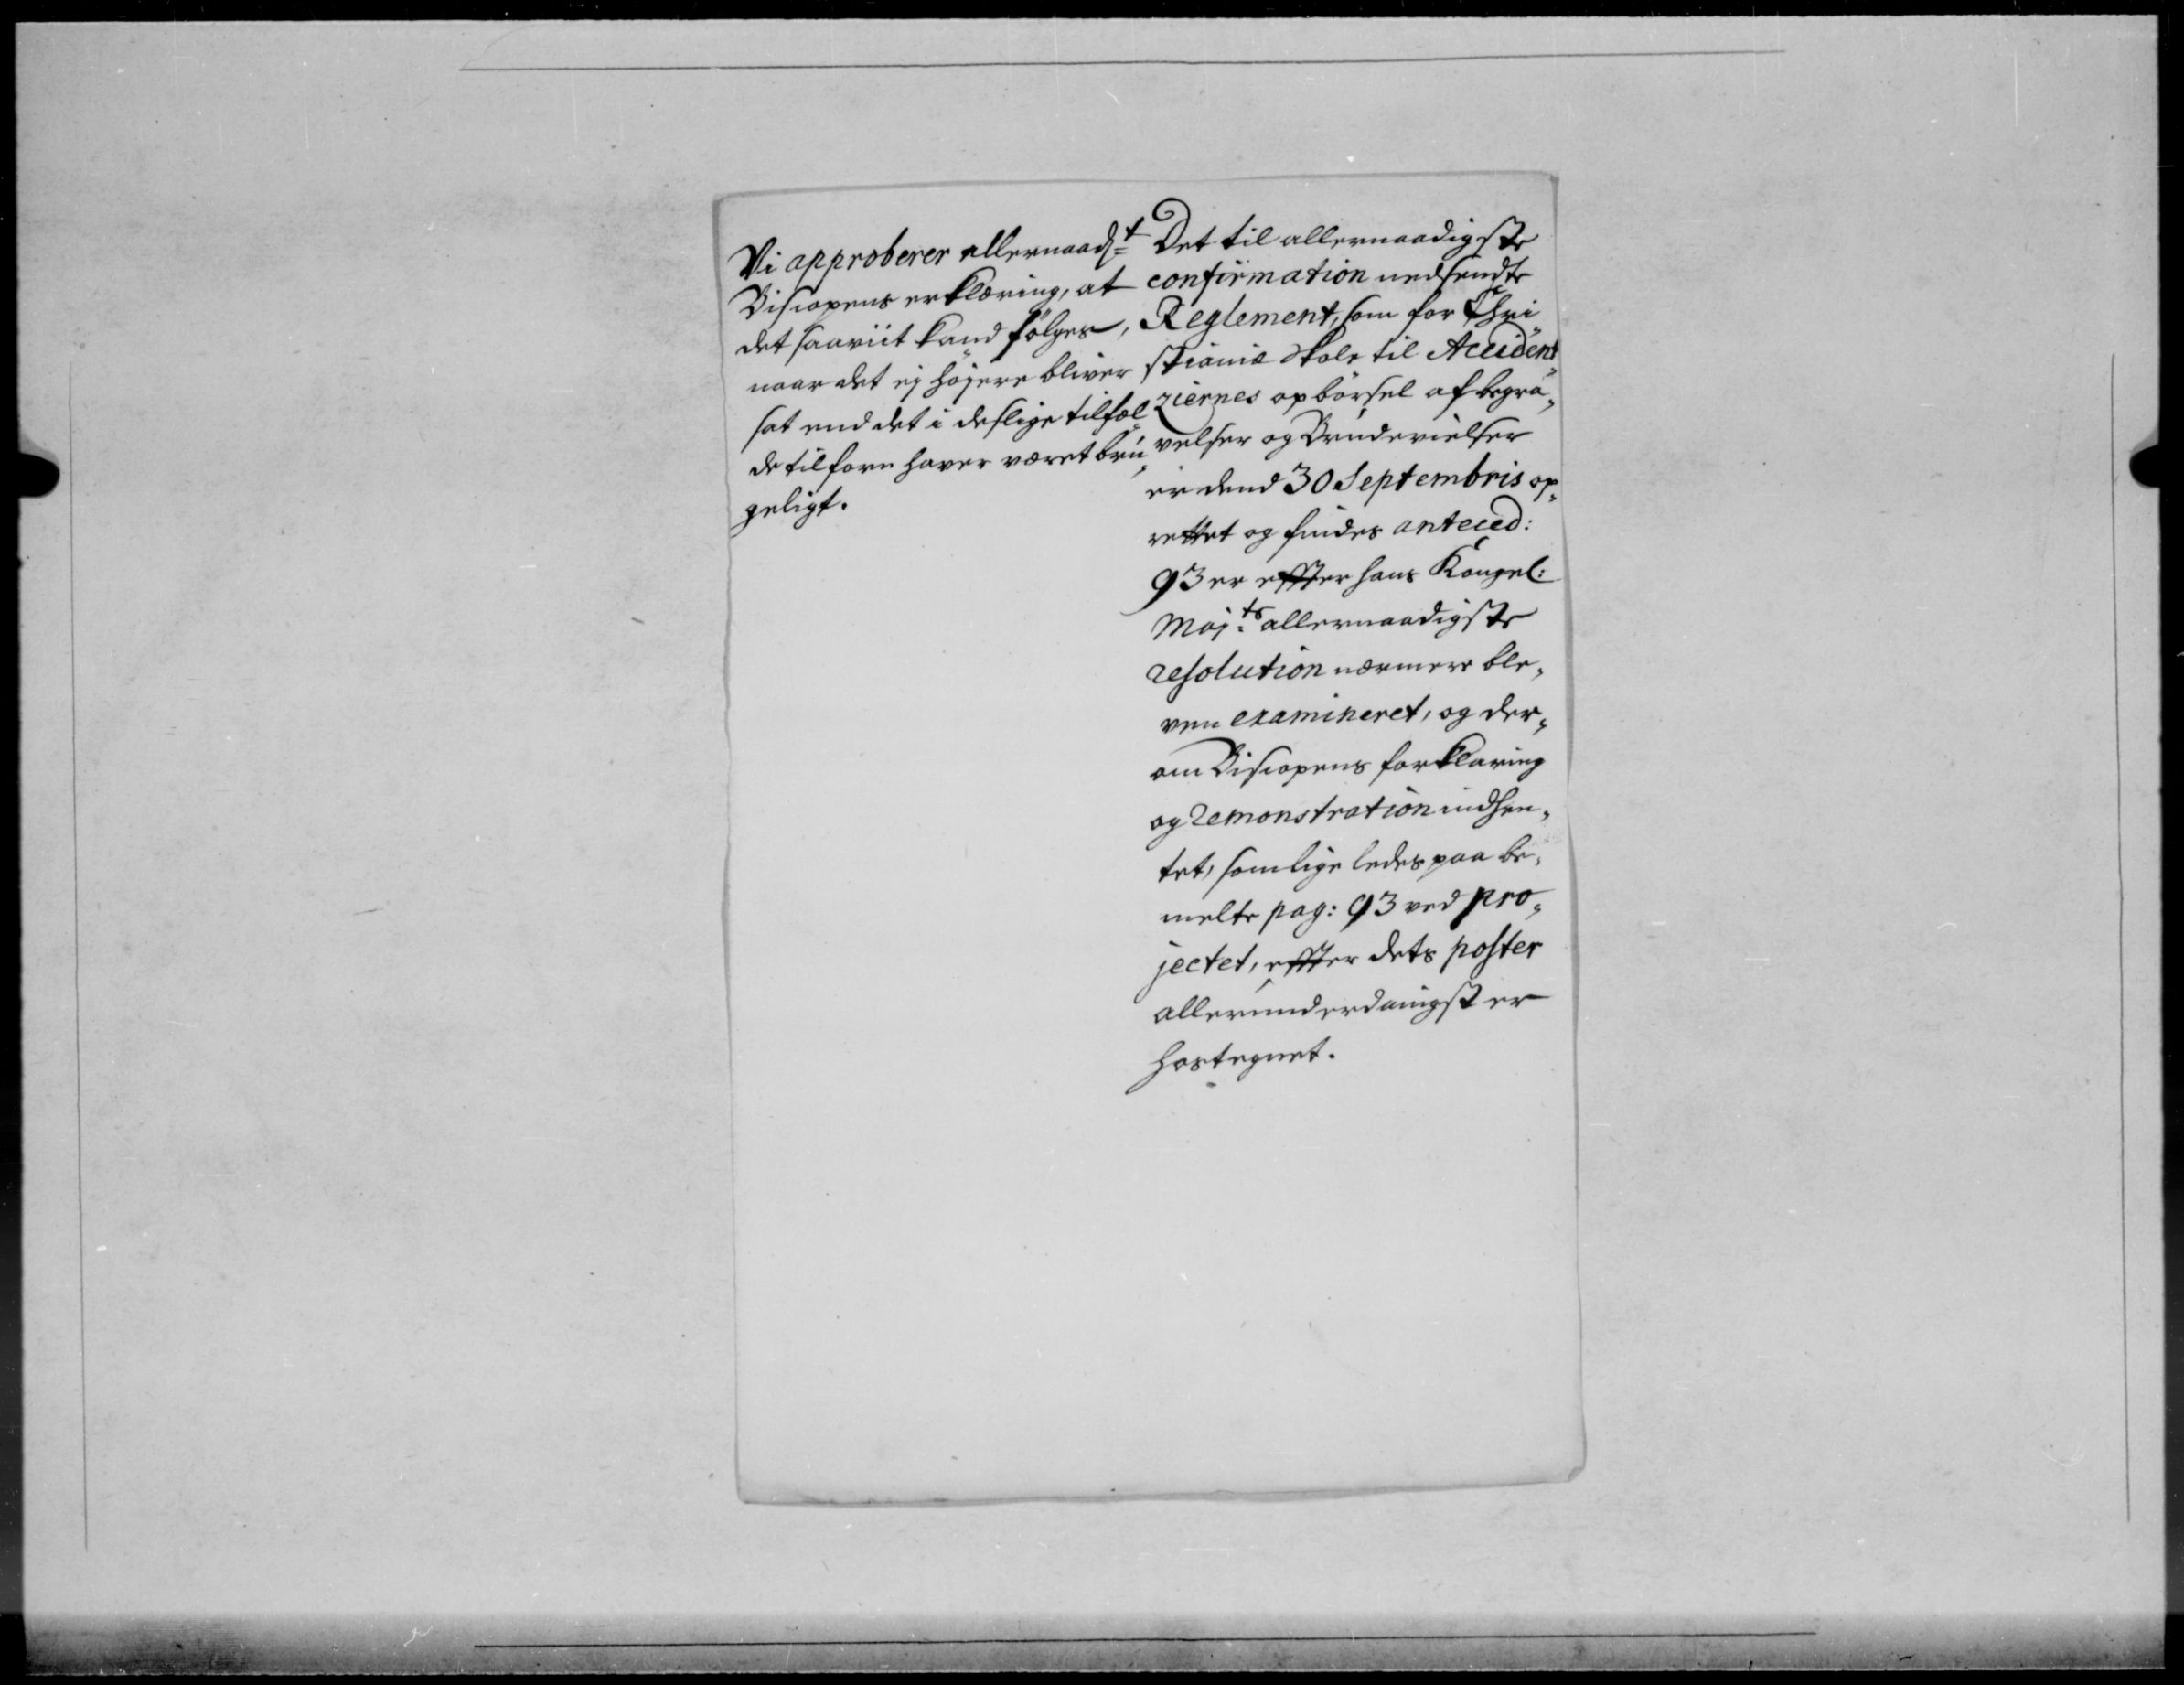 Vi approberer allernaadst
Biscopens erklæring, at
det saaviit kand følges,
naar det ej højere bliver
sat end det i deslige tilfæl„
de tilforn haver været brú„
geligt.
Det til allernaadigste
confirmation nedsendte
Reglement, som for Chri„
stianiæ Skole til Acciden„
ziernes opbörsel af begra„
velser og Brudevielser
er dend 30 Septembris op„
rettet og findes anteced:
93 er effter hans Kongel:
Maj:ts allernaadigste
resolution nærmere ble„
ven examineret, og der„
om Biscopens forklaring
og remonstration indhen„
tet, somlige ledes paa be„
melte pag: 93 ved pro„
jectet, effter dets poster
allerunderdanigst er
hostegnet.